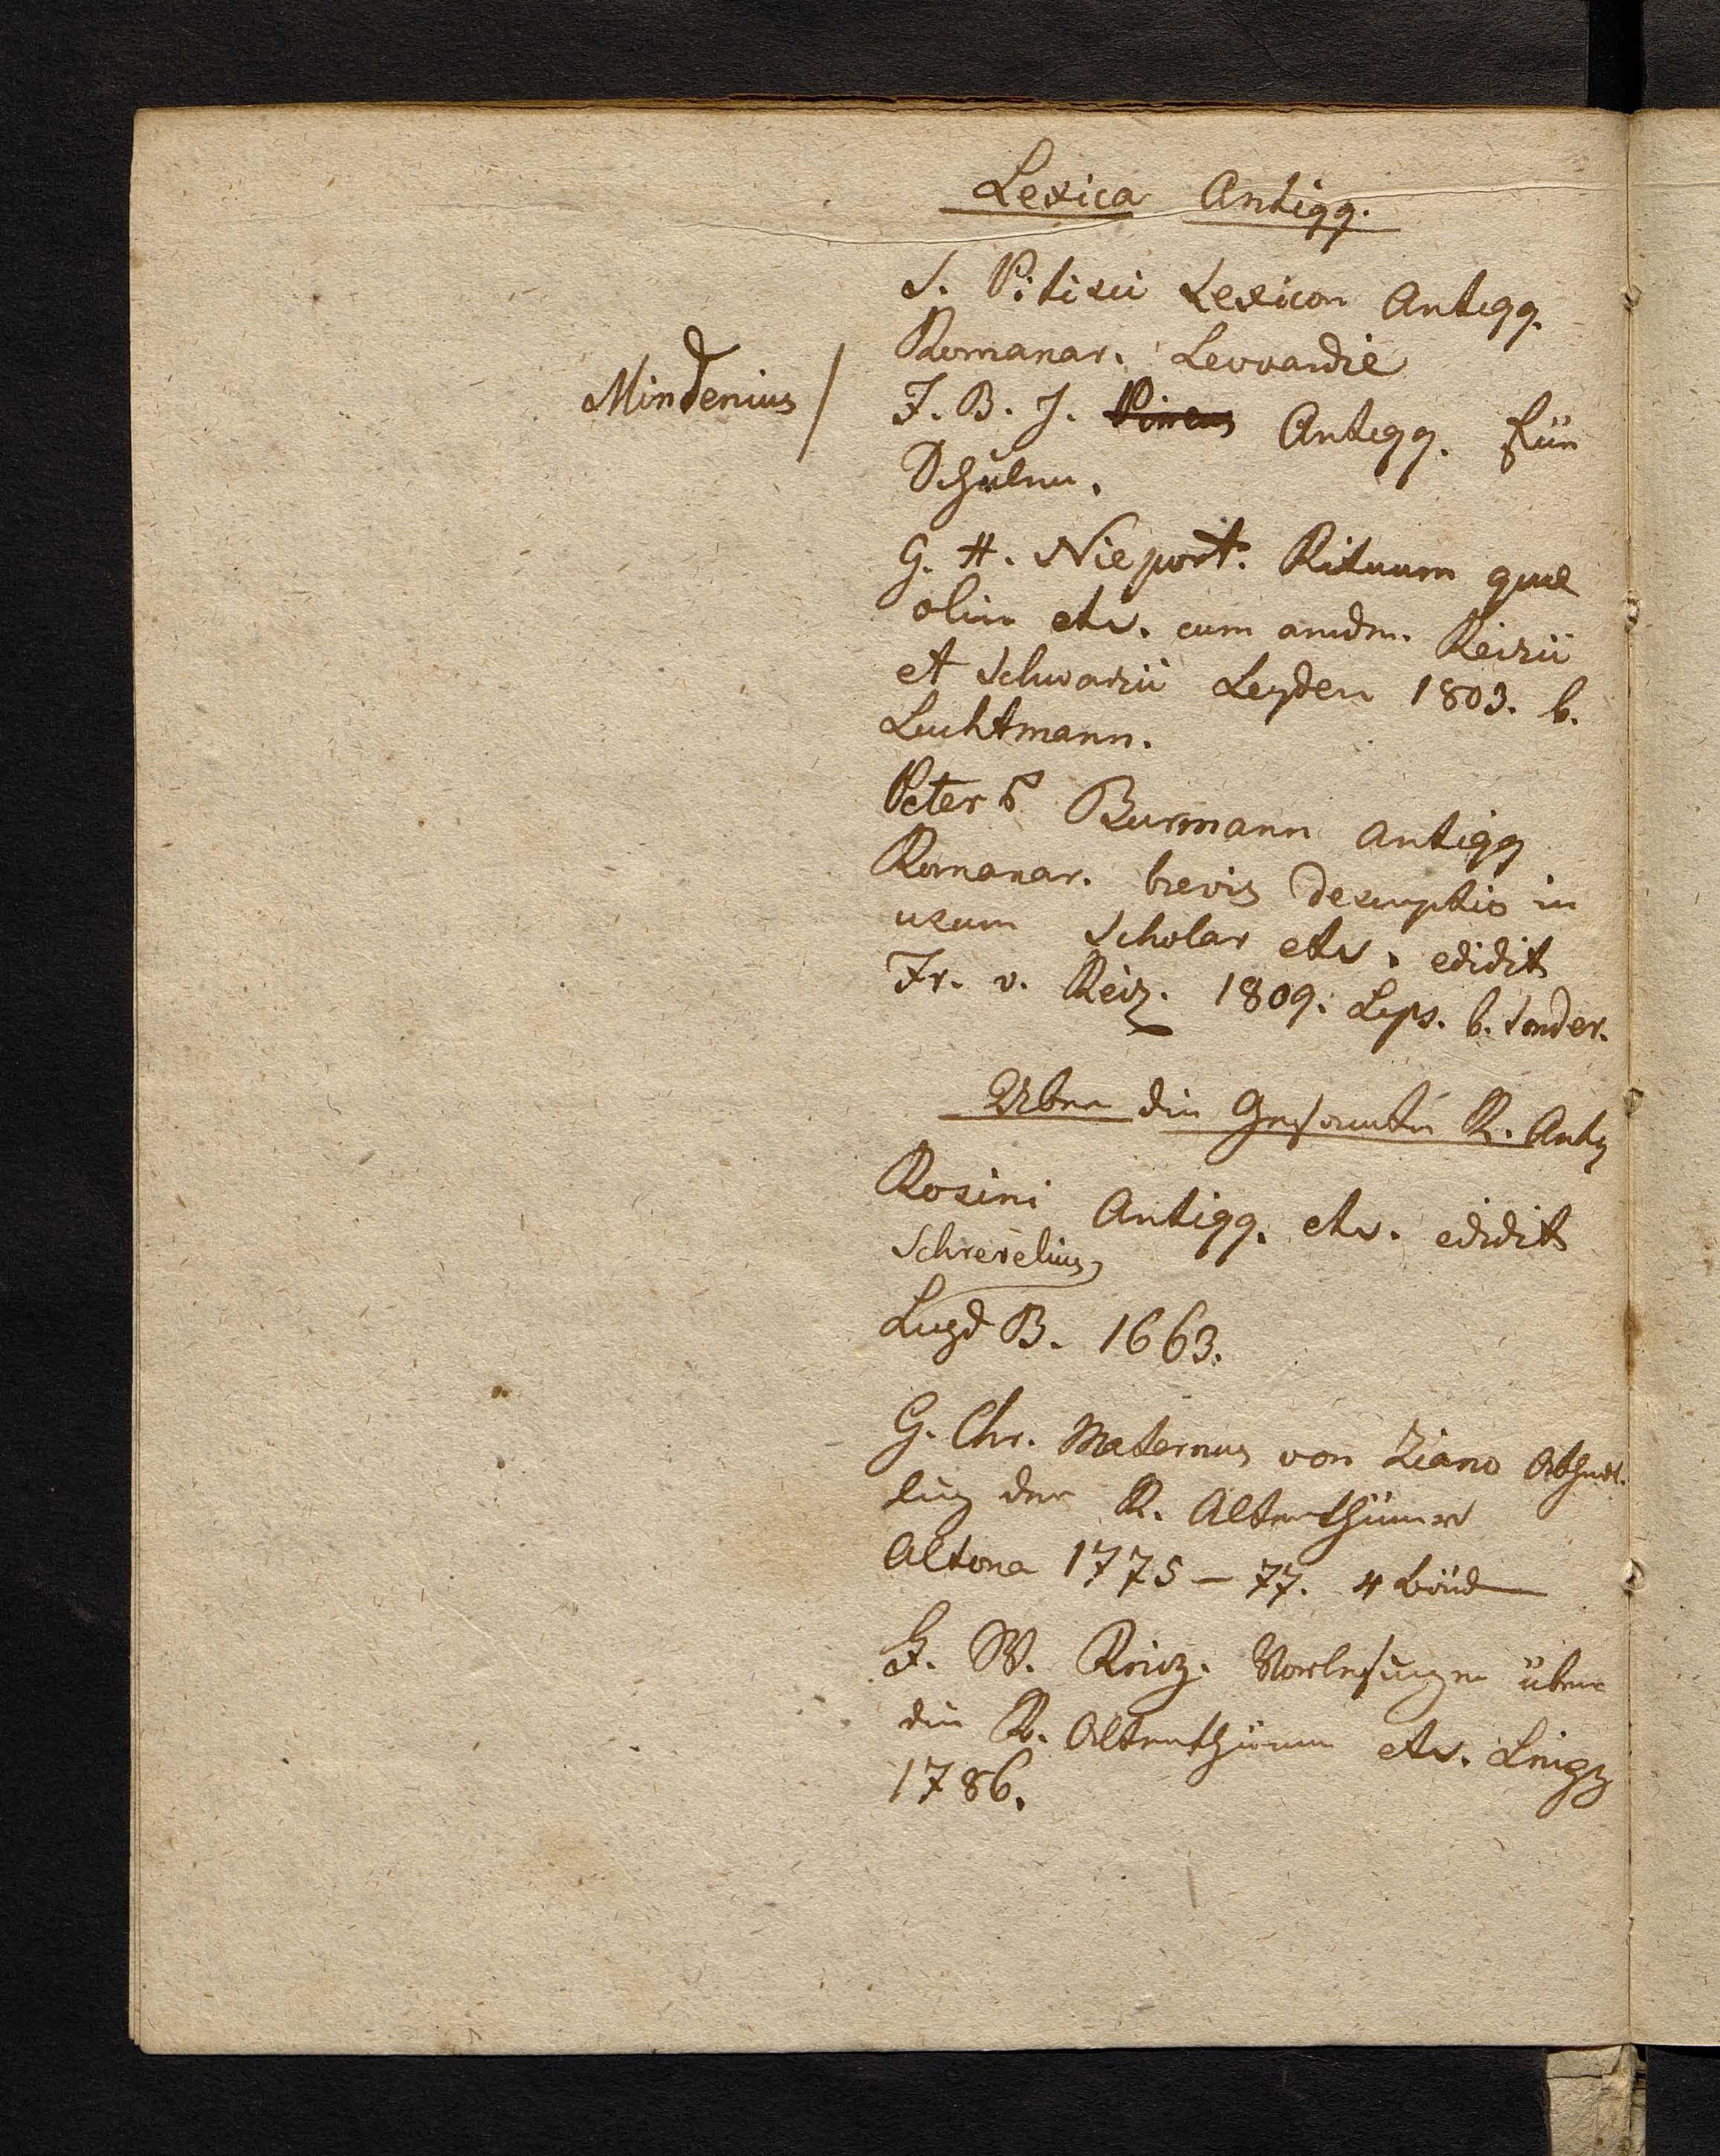 Lexica Antiqq.
S. Pitisci Lexicon Antiqq.
Romanar. Leovardie
Mindenius /
F. B. J. Antiqq. für
Schulen.
G. H. Nieport. Rituum quae
olim etc. cum Reizii
et Schwarzii Leyden 1803. b.
Luchtmann.
Peter Burmann Antiqq
Romanar. brevis descriptio in
usum Scholar etc. edidit
Fr. v. Reiz. 1809. Lips. b. Sonder.
Über die Gesamten R. Antq
Rosini Antiqq. etc. edidit
Schrevelius
Lugd B. 1663.
G. Chr. Maternus von Ziano Abhndl.
lung der R. Alterthümer
Altona 1775 – 77. 4 Bänd
F. W. Reiz. Vorlesungen über
die R. Alterthümer etc. Leipz
1786.